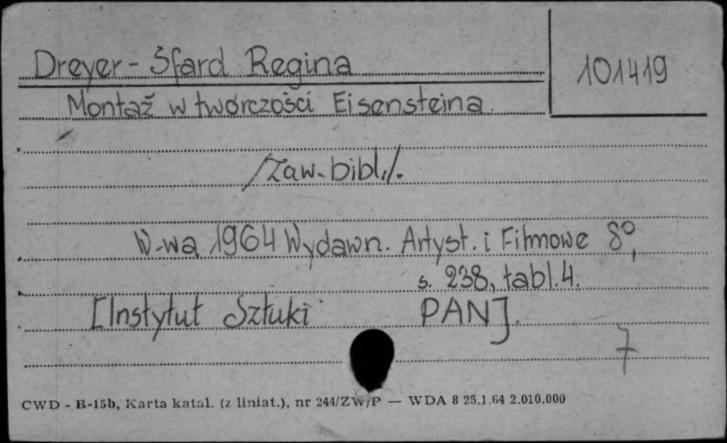 Dreyer - Sfard Regina
101419
Montaż w twórczości Eisensteina.
/Zaw. bibl./.
W-wa 1964 Wydawn. Artyst. i Filmowe 8°,
s. 238, tabl. 4.
[Instytut Sztuki PAN].
7
CWD - B-15b, Karta katal. (z liniat.), nr 244/ZW/P — WDA 8 25.1.64 2.010.000